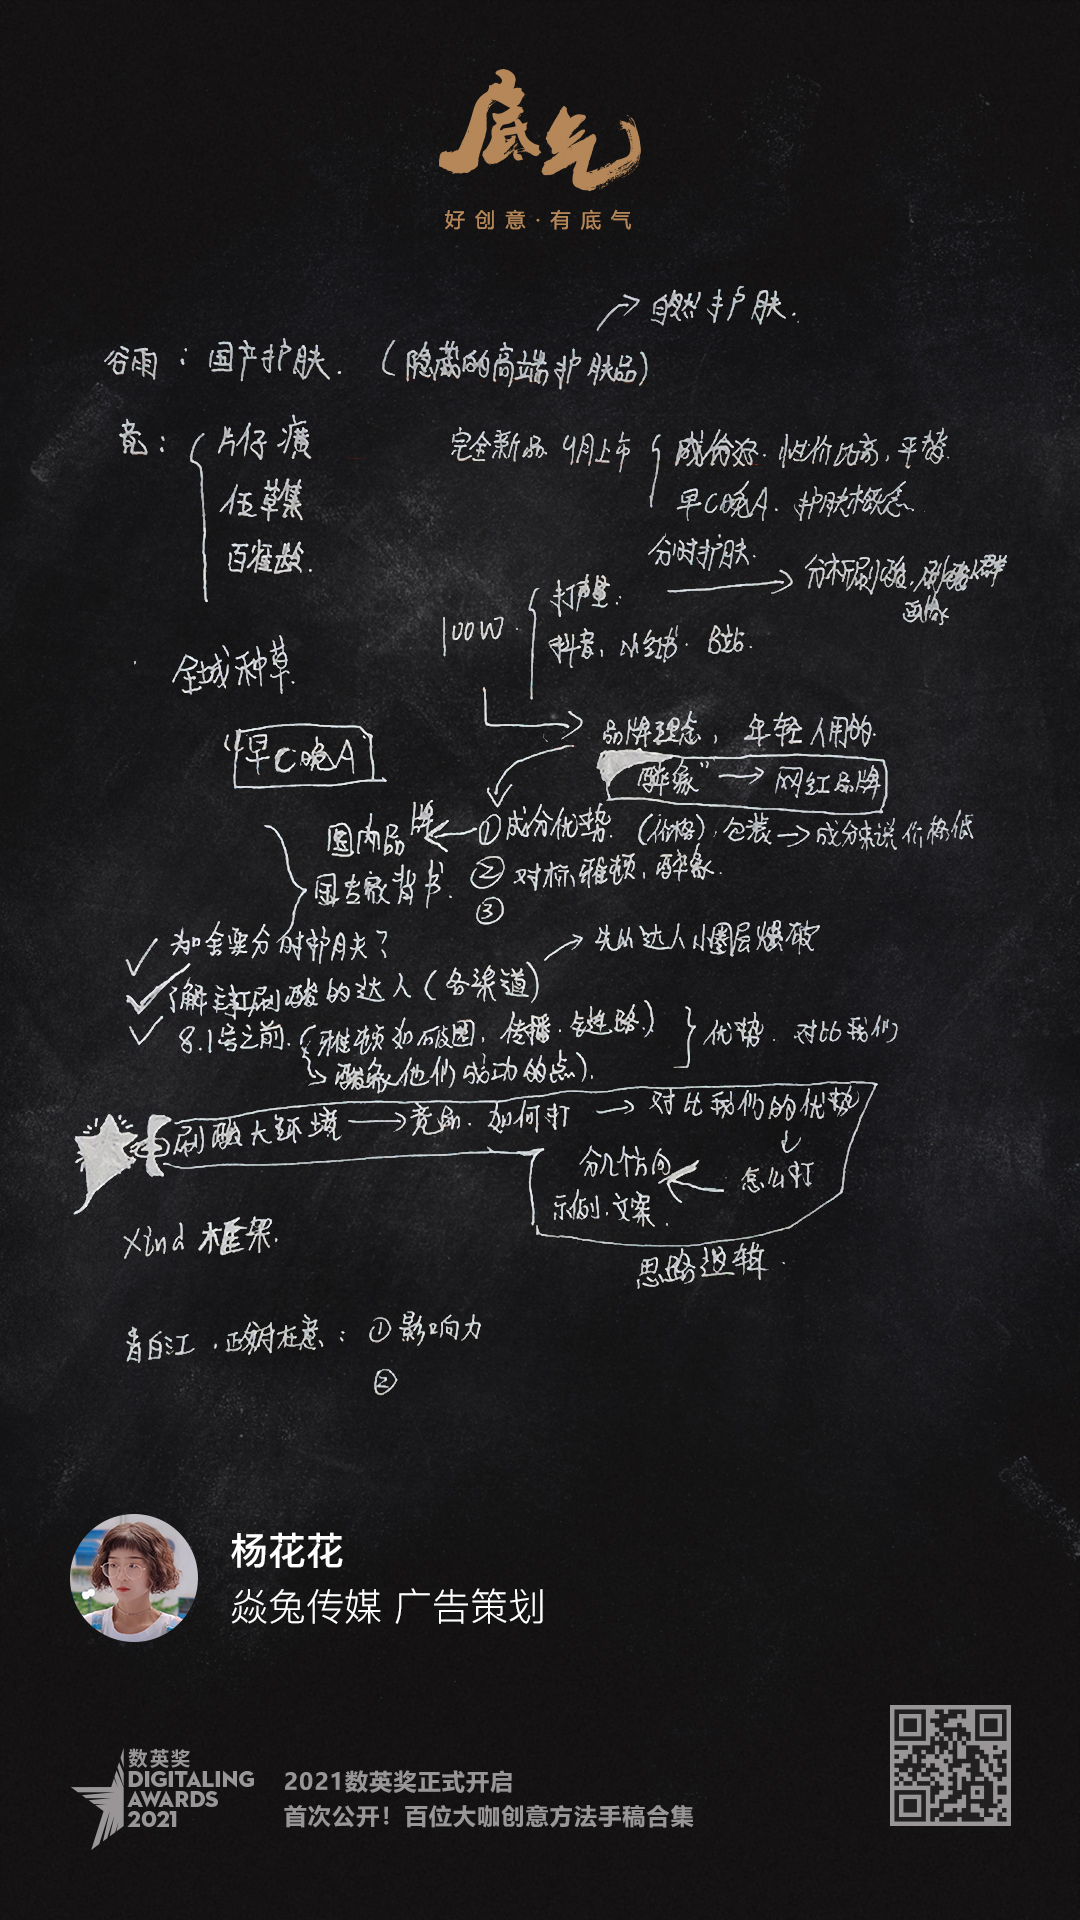 底气
好创意·有底气
自然护肤.
谷雨:国产护肤.(隐藏的高端护肤品)
竞:
片仔癀
伍草集
百雀龄.
完全新品 9月上市
成份好.性价比高,平替.
早C晚A.护肤概念
分时护肤.
分析刷酸,刷酸人群
画像
100W.
打声量:
抖音,小红书.B站.
全域种草.
“早C晚A
品牌理念,年轻人用的.
醉象”→网红品牌
国内品牌
①成分优势.(价格),包装→成分来说价格低
国专家背书.
②对标雅顿,醉象.
③
为啥要分时护肤?
先从达人小圈层爆破
了解主打刷酸的达人(各渠道)
8.1号之前.(雅顿如何破圈,传播.链路.)
醉象他们成功的点).
优势.对比我们
刷酸大环境→竞品.如何打→对比我们的优势
怎么打
分几个方向
示例.文案.
思路逻辑.
Xind 框架.
青白江.政府在意:①影响力
②
杨花花
焱兔传媒 广告策划
数英奖
DIGITALING
AWARDS
2021
2021数英奖正式开启
首次公开!百位大咖创意方法手稿合集